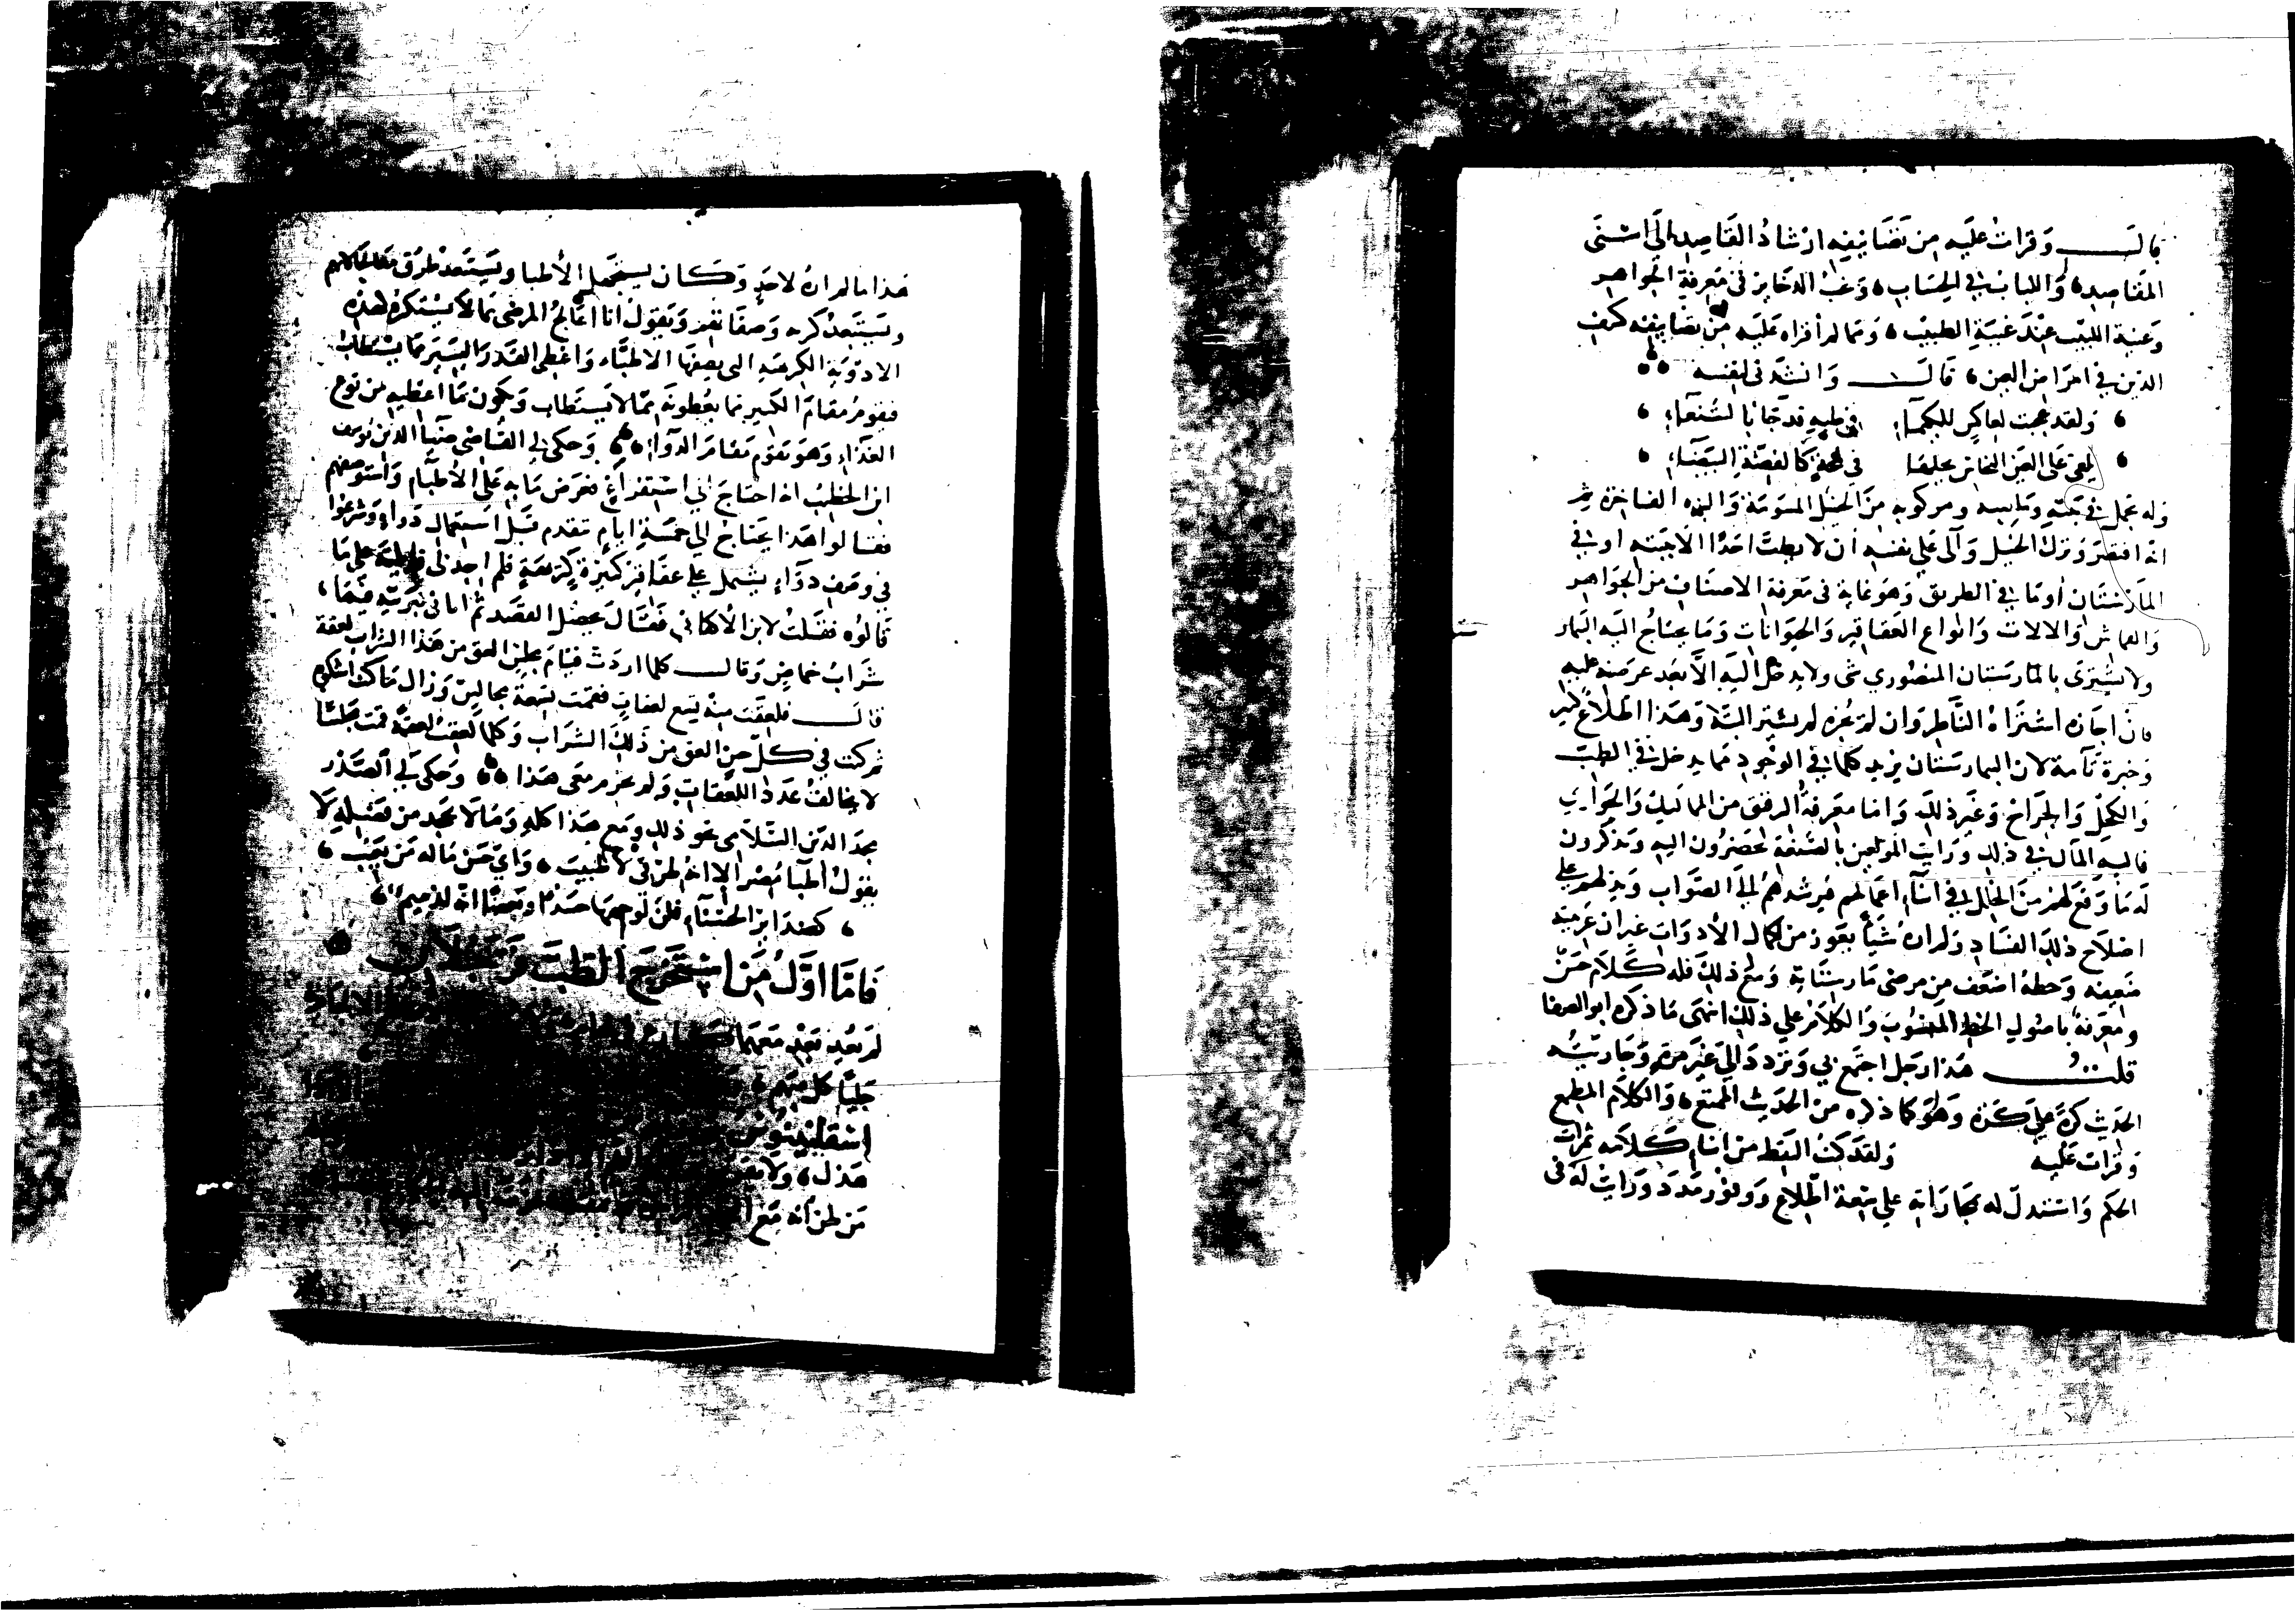 قالــــ وقرات عليه من تصانيفه ارشاد القاصد الى اسنى
المقاصد، واللباب في الحساب، ونخب الدخاير في معرفة الجواهر
وغنية اللبيب عند غيبة الطبيب، ومما لم أقراه عليه من تصانيفه كشف
الدين في امراض العين، قالــــ وانشدني لنفسه
ولقد عجبت لعاكس للكيمياء في طبه قد جا بالشنعاء
يلقي على العين النحاس يحيلها في لمحة كالفضة البيضاء
وله تجمل في بيته وملبسه ومركوبه من الخيل المسومة والبزه الفاخرة ثم
انه اقتصر وترك الخيل وآلى على نفسه أن لا يطب احدا الا في بيته او في
المارستان او في الطريق وهو غاية في معرفة الاصناف من الجواهر
والقماش والالات وانواع العقاقير والحيوانات وما يحتاج اليه البيمار
ولا يشترى بالمارستان المنصوري شي ولا يدخل اليه الا بعد عرضه عليه
فان اجازه اشتراه الناظر وان لم يجزه لم يشتر البتة وهذا اطلاع كبير
وخبرة تامة لان البيمارستان يريد كلما في الوجود مما يدخل في الطب
والكحل والجراح وغير ذلك واما معرفة الرقيق من المماليك والجواري
فاليه المآل في ذلك ورايت المولعين بالصنعة يحضرون اليه ويذكرون
له ما وقع لهم من الخلل في اثناء اعمالهم فيرشدهم الى الصواب ويدلهم على
اصلاح ذلك الفساد ولم اره شيا يعوز من كمال الأدوات غير ان عربيته
ضعيفة وخطه اضعف من مرضى مارستانه ومع ذلك فله كلام حسن
ومعرفة باصول الخط المنسوب والكلام على ذلك انتهى ما ذكره ابو الصفا
قلت هذا رجل اجتمع بي وتردد الي غير مرة وجاريته
الحديث كرة على كرة وهو كما ذكره من الحديث الممتع، والكلام المطمع
وقرات عليه ولقد كنت التقط من اثناء كلامه ثمرات
الحكم واستدل له بمجاراته على سعة اطلاع ووفور مدد ورايت له في
هذا ما لم اره لاحد وكان يستجهل الأطبا ويستبعد طرق معالجاتهم
ويستبعد كره وصفاتهم ويقول انا اعالج المرضى بما لا يستكره لهذه
الادوية الكريهة التى يصفها الاطباء واعطي القدر اليسير مما يستطاب
فيقوم مقام الكثير مما يعطونه مما لا يستطاب ويكون ما اعطيه من نوع
الغذاء وهو يقوم مقام الدواء وحكى لي القاضي ضيا الدين يوسف
ابن الخطيب انه احتاج الى استفراغ فعرض ما به على الأطباء واستوصفهم
فقالوا هذا يحتاج الى خمسة ايام تقدم قبل استعمال دواء وشرعوا
في وصف دواء يشتمل على عقاقير كثيرة كريهة فلم اجد لي قابلية على ما
قالوه فقلت لابن الأكفاني فقال يحصل القصد ثم اتاني ببرنيه فيها
شراب خماض وقالــــ كلما اردت قيام مجلس العق من هذا الشراب لعقة
قالــــ فلعقت منه تسع لعقات فقمت تسعة مجالس وزال ما كنت اشكوه
ثم كنت في كل حين العق من ذلك الشراب وكلما لعقت لعقة قمت مجلسا
لا يخالف عدد اللعقات ولم يخرم معي هذا وحكى لي الصدر
مجد الدين السلامي نحو ذلك ومع هذا كله وما لا يجحد من فضله لا
يقول أطبا مصر الا انه لمن في لا طبيب، واي حسن ماله من يعيب
كضراير الحسناء قلن لوجهها حسدا وبغضا انه لذميم
فاما اول من استخرج الطب
لم نعد نعد معهما
جليا كل منهم
اسقلبيوس
هذل، ولا بعد
من لحن انه مع